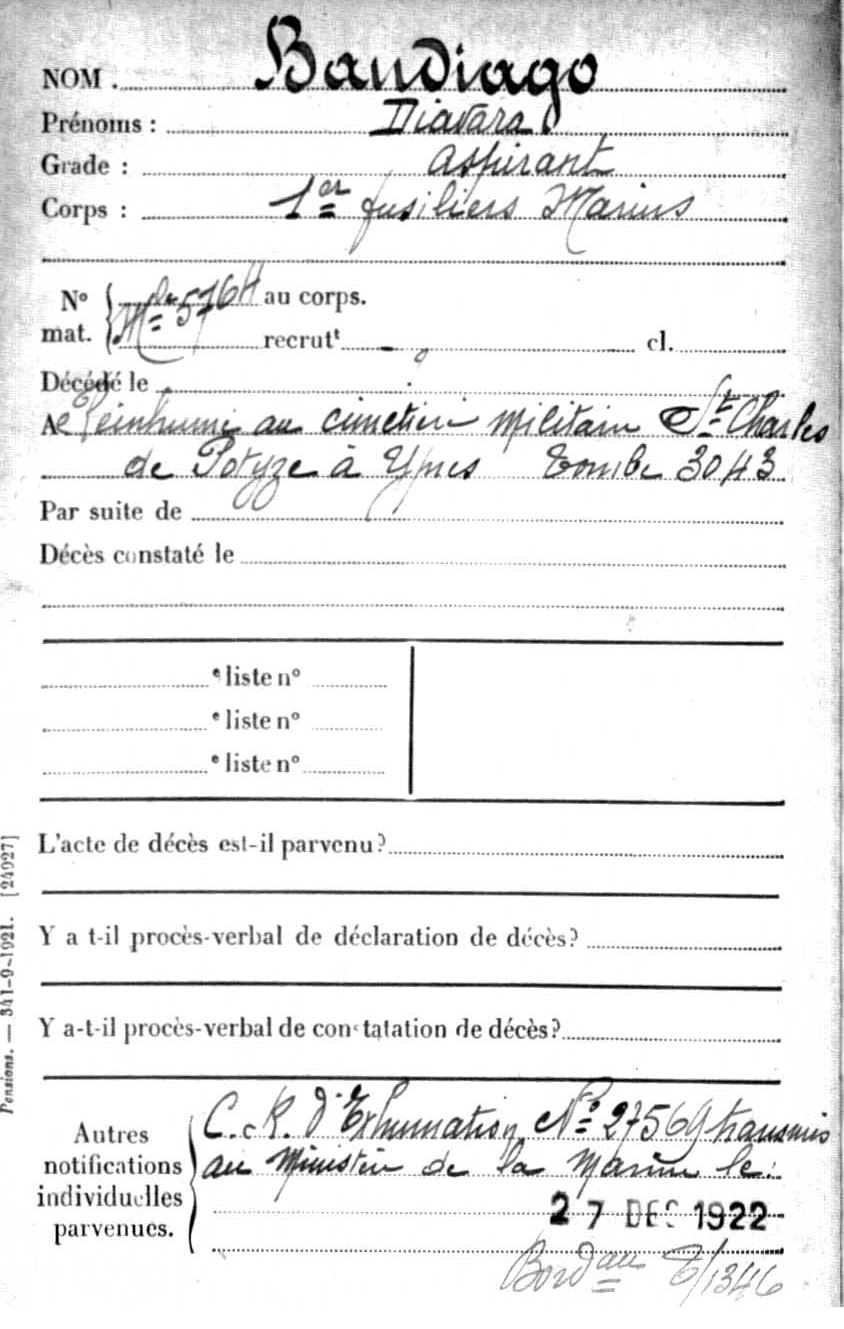 NOM . Bandiago
Prénoms : Diavara
Grade : Aspirant
Corps : 1er fusiliers Marins
N° mat. Mle 576H au corps.
recrutt - cl.
Décédé le
A Réinhumé au cimetière militaire St Charles
de Potyze à Ypres tombe 3043
Par suite de
Décès constaté le
e liste n°
e liste n°
e liste n°
L'acte de décès est-il parvenu?
Y a t-il procès-verbal de déclaration de décès?
Y a-t-il procès-verbal de constatation de décès?
Autres notifications individuelles parvenues.
C. R. d'Exhumation N° 27569 transmis
au Ministère de la Marine le :
27 DEC 1922
Bordau E/1346
Pensions. — 341-9-1921. [24927]